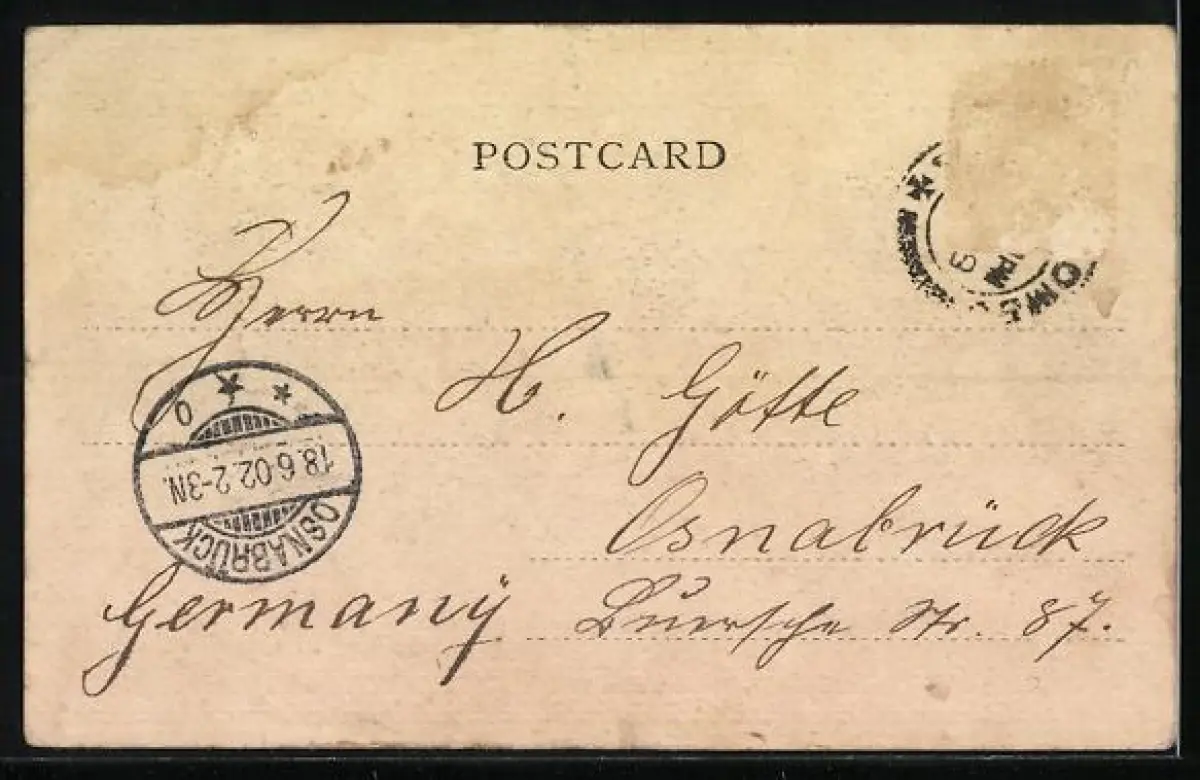 POSTCARD
Herrn
H. Götte
Osnabrück
Germanÿ
Buersche Str. 87.
OSNABRÜCK
18.6.02.2-3N.